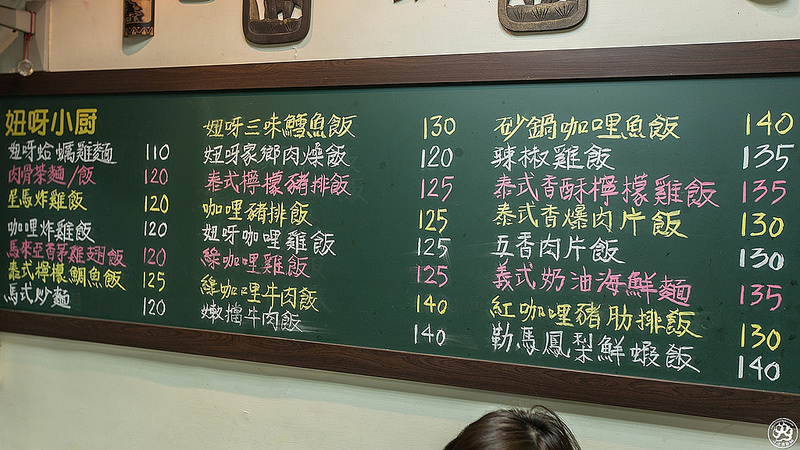 妞呀小厨
妞呀蛤蠣雞麵 110
肉骨茶麵/飯 120
星馬炸雞飯 120
咖哩炸雞飯 120
馬來亞香茅雞翅飯 120
泰式檸檬鯛魚飯 125
馬式炒麵 120
妞呀三味鱈魚飯 130
妞呀家鄉肉燥飯 120
泰式檸檬豬排飯 125
咖哩豬排飯 125
妞呀咖哩雞飯 125
綠咖哩雞飯 125
綠咖哩牛肉飯 140
嫩擋牛肉飯 140
砂鍋咖哩魚飯 140
辣椒雞飯 135
泰式香酥檸檬雞飯 135
泰式香爆肉片飯 130
五香肉片飯 130
義式奶油海鮮麵 135
紅咖哩豬肋排飯 130
勒馬鳳梨鮮蝦飯 140